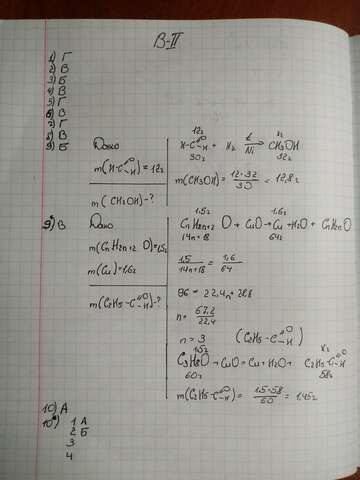 В-II
1) Г
2) В
3) Б
4) В
5) Г
6) В
7) Г
8) В
9) Б
Дано
m(H-C=O-H) = 12г
m(CH3OH)-?
12г x г
H-C=O-H + H2 t→Ni CH3OH
30г 32г
m(CH3OH) = 12·32/30 = 12,8г
9) В
Дано
m(CnH2n+2O)=1,5г
m(Cu)=1,6г
m(C2H5-C=O-H)-?
1,5г 1,6г
CnH2n+2O + CuO → Cu + H2O + CnH2nO
14n+18 64г
1,5/14n+18 = 1,6/64
96 = 22,4n + 28,8
n = 67,2/22,4
n = 3 (C2H5-C=O-H)
1,5г x г
C3H8O + CuO = Cu + H2O + C2H5-C=O-H
60г 58г
m(C2H5-C=O-H) = 1,5·58/60 = 1,45г
10) А
1 А
2 Б
3
4